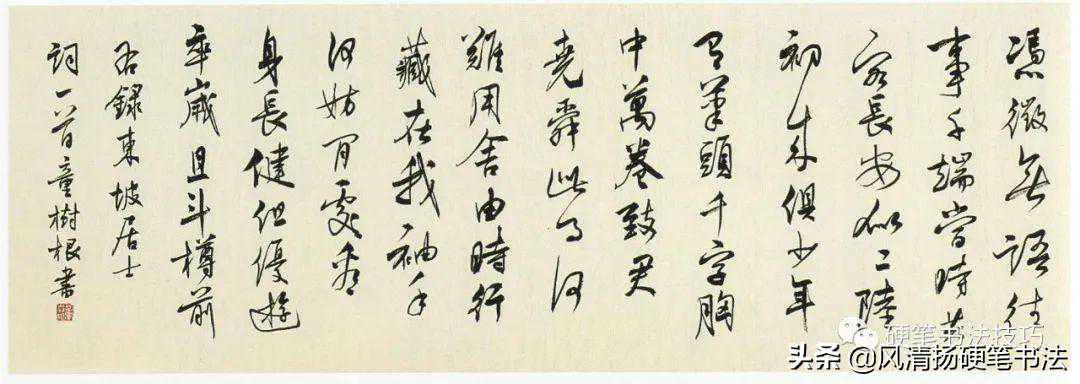 憑徵無語往
事千端當時共
客長安似二陸
初來俱少年
有筆頭千字胸
中萬卷致君
堯舜此事何
難用舍由時行
藏在我袖手
何妨閒處看
身長健但優遊
卒歲且斗樽前
右錄東坡居士
詞一首童樹根書
硬笔书法技巧
头条 @风清扬硬笔书法